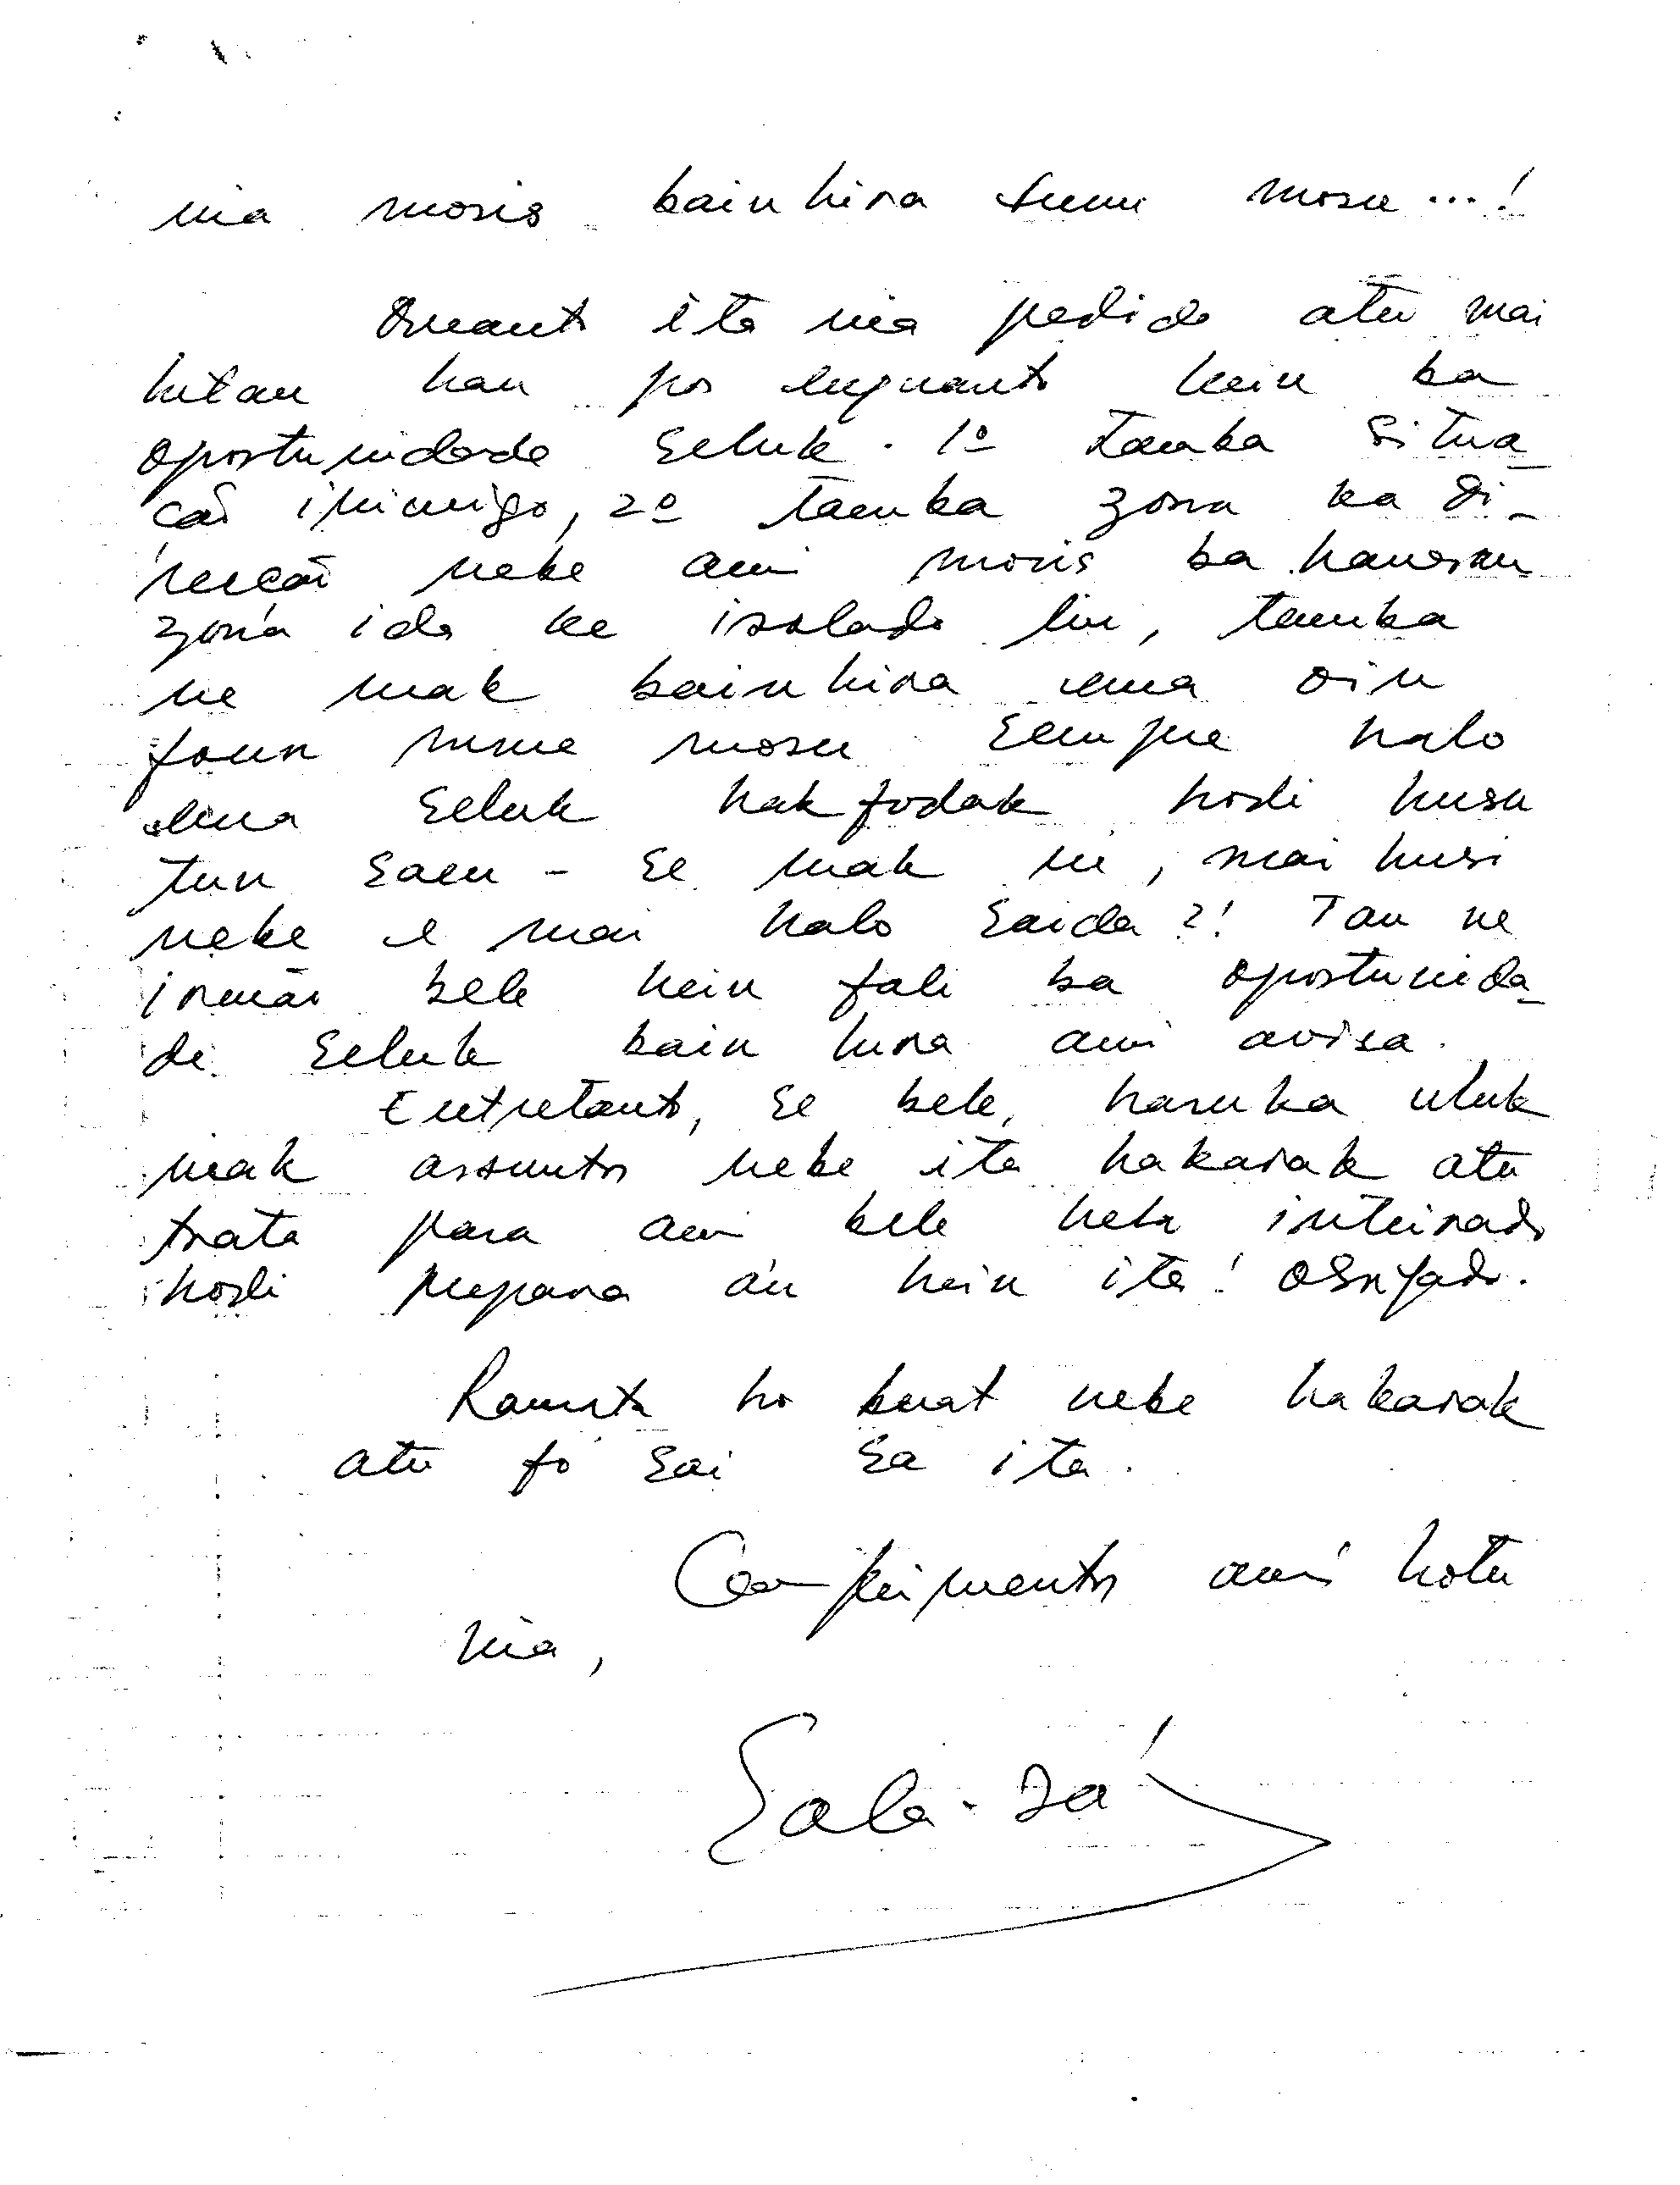 nia moris bainhira funu mosu ...!
Quanto ita nia pedido atu mai
hetan hau por enquanto hein ba
oportunidade seluk. 1º tamba situa_
cão inimigo, 2º tamba zona ka di_
reccão nebe ami moris ba hanesan
zona ida ke isolado liu, tamba
ne mak bainhira ema oin
foun ruma mosu sempre halo
ema seluk hakfodak hodi husu
tun saeu - se mak ne, mai husi
nebe e mai halo saida?! Tan ne
irmão bele hein fali ba oportunida_
de seluk bain hira ami avisa.
Entretanto, se bele, haruka uluk
mak assuntos nebe ita hakarak atu
trata para ami bele hela inteirado
hodi prepara án hein ita! Obrigado.
Ramata ho buat nebe hakarak
atu fó sai ba ita.
Comprimentos ami hotu
nia,
Sala-zá